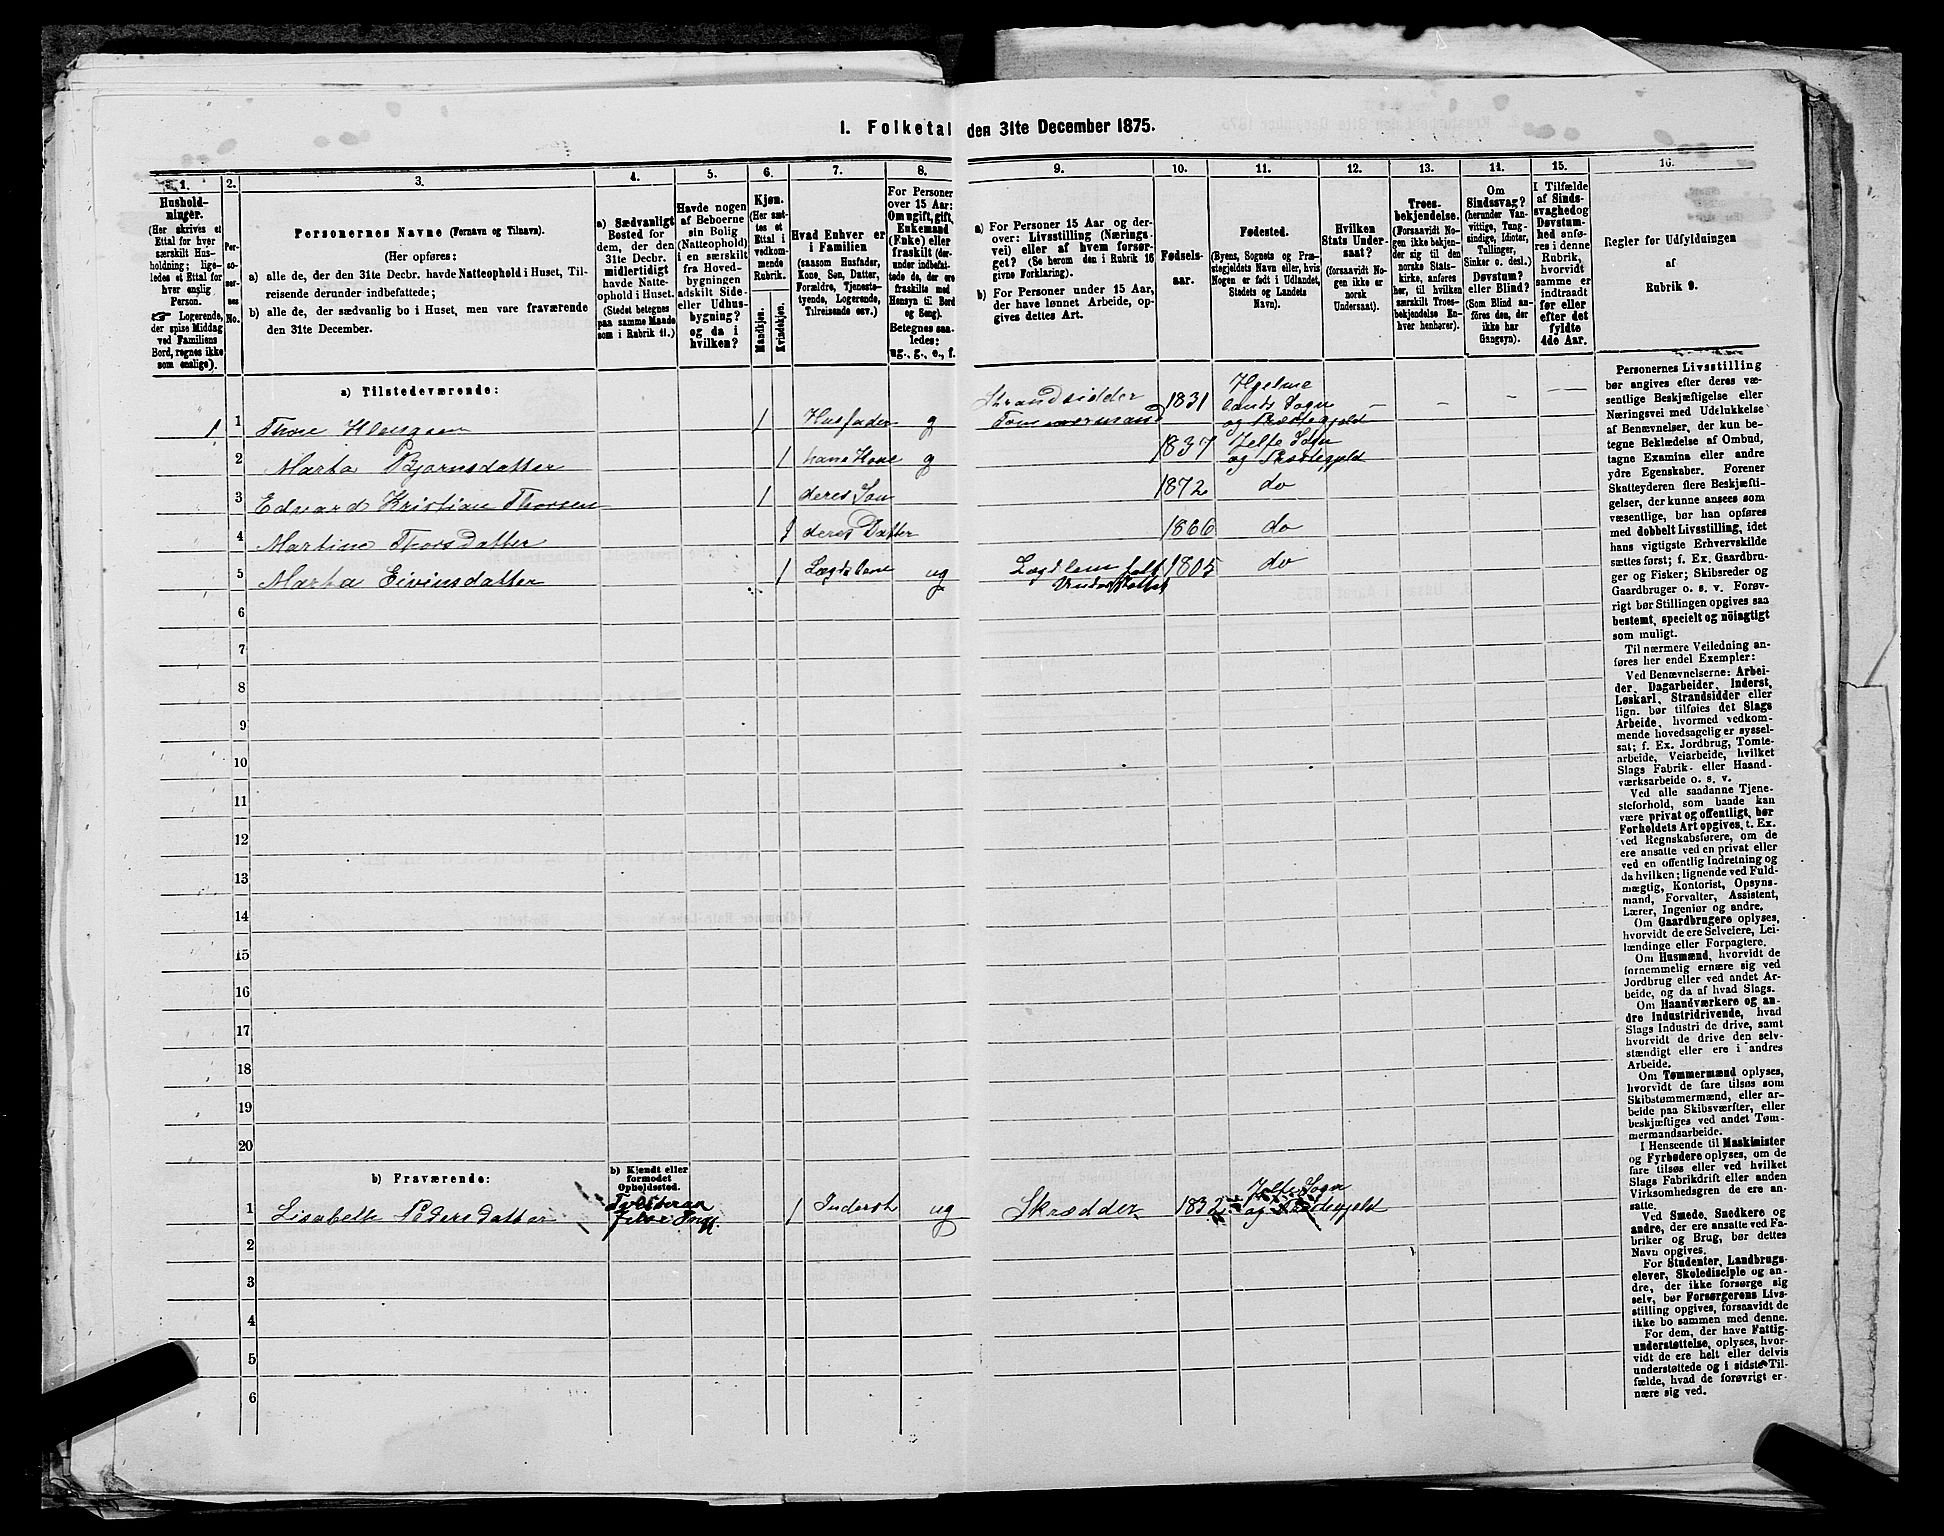 I. Folketal den 31te December 1875.
1.
Hushold-
ninger.
(Her skrives et
Ettal for hver
særskilt Hus-
holdning; lige-
ledes et Ettal for
hver enslig
Person.
☞ Logerende,
der spise Middag
ved Familiens
Bord, regnes ikke
som enslige).
2.
Per-
so-
ner-
nes
No.
3.
Personernes Navne (Fornavn og Tilnavn).
(Her opføres:
a) alle de, der den 31te Decbr. havde Natteophold i Huset, Til-
reisende derunder indbefattede;
b) alle de, der sædvanlig bo i Huset, men vare fraværende
den 31te December.
4.
a) Sædvanligt
Bosted for
dem, der den
31te Decbr.
midlertidigt
havde Natte-
ophold i Huset.
(Stedet betegnes
paa samme Maade
som i Rubrik 11.)
5.
Havde nogen
af Beboerne
sin Bolig
(Natteophold)
i en særskilt
fra Hoved-
bygningen
adskilt Side-
eller Udhus-
bygning?
og da i
hvilken?
6.
Kjøn.
(Her sæt-
tes et
Ettal i
vedkom-
mende
Rubrik.
Mandkjøn.
Kvindekjøn.
7.
Hvad Enhver er
i Familien
(saasom Husfader,
Kone, Søn, Datter,
Forældre, Tjeneste-
tyende, Logerende,
Tilreisende osv.)
8.
For Personer
over 15 Aar:
Om ugift, gift,
Enkemand
(Enke) eller
fraskilt (der-
under indbefat-
tede de, der ere
fraskilte med
Hensyn til Bord
og Seng).
Betegnes saa-
ledes:
ug., g., e., f.
9.
a) For Personer 15 Aar og der-
over: Livsstilling (Nærings-
vei) eller af hvem forsør-
get? (Se herom den i Rubrik 16
givne Forklaring).
b) For Personer under 15 Aar,
der have lønnet Arbeide, op-
gives dettes Art.
10.
Fødsels-
aar.
11.
Fødested.
(Byens, Sognets og Præ-
stegjeldets Navn eller, hvis
Nogen er født i Udlandet,
Stedets og Landets
Navn).
12.
Hvilken
Stats Under-
saat?
(forsaavidt No-
gen ikke er
norsk
Undersaat).
13.
Troes-
bekjendelse.
(Forsaavidt No-
gen ikke bekjen-
der sig til den
norske Stats-
kirke, anføres
her, til hvilken
særskilt Troes-
bekjendelse En-
hver henhører).
14.
Om
Sindssvag?
(herunder Van-
vittige, Tung-
sindige, Idioter,
Tullinger,
Sinker o. desl.)
Døvstum?
eller Blind?
(Som Blind an-
føres den, der
ikke har
Gangsyn).
15.
I Tilfælde
af Sinds-
svaghed og
Døvstum-
hed anfø-
res i denne
Rubrik,
hvorvidt
samme er
indtraadt
før eller
efter det
fyldte
4de Aar.
16.
Regler for Udfyldningen
af
Rubrik 9.
a) Tilstedeværende:
1 1 Thore 1 Husfader g Strandsidder Tømmermand 1831 Hjelme
lands Sogn
og Præstegjeld — — — —
2 Marta Bjørnsdatter 1 hans Kone g 1837 Jelse Sogn
og Præstegjeld
3 Edvard Kristian Thorsen 1 deres Søn 1872 do
4 Martine Thorsdatter 1 deres Datter 1866 do
5 Marta Eivinsdatter 1 ug Lægdslem 1805 do
6
7
8
9
10
11
12
13
14
15
16
17
18
19
20
b) Fraværende:
b) Kjendt eller
formodet
Opholdssted.
1 Lisabeth Pedersdatter 1 Inderst ug Skrædder 1832 Jelse Sogn
og Præstegjeld
2
3
4
5
6
Personernes Livsstilling
bør angives efter deres væ-
sentlige Beskjæftigelse eller
Næringsvei med Udelukkelse
af Benævnelser, der kun be-
tegne Beklædelse af Ombud,
tagne Examina eller andre
ydre Egenskaber. Forener
Skatteyderen flere Beskjæfti-
gelser, der kunne ansees som
væsentlige, bør han opføres
med dobbelt Livsstilling, idet
hans vigtigste Erhvervskilde
sættes først; f. Ex. Gaardbru-
ger og Fisker; Skibsreder og
Gaardbruger o. s. v. Forøv-
rigt bør Stillingen opgives saa
bestemt, specielt og nöiagtigt
som muligt.
Til nærmere Veiledning an-
føres her endel Exempler:
Ved Benævnelserne: Arbei-
der, Dagarbeider, Inderst,
Løskarl, Strandsidder eller
lign. bør tilføies det Slags
Arbeide, hvormed vedkom-
mende hovedsagelig er syssel-
sat; f. Ex. Jordbrug, Tomte-
arbeide, Veiarbeide, hvilket
Slags Fabrik- eller Haand-
værksarbeide o. s. v.
Ved alle saadanne Tjene-
steforhold, som baade kan
være privat og offentligt, bør
Forholdets Art opgives, t. Ex.
ved Regnskabsførere, om de
ere ansatte ved en privat eller
ved en offentlig Indretning og
da hvilken; lignende ved Fuld-
mægtig, Kontorist, Opsyns-
mand, Forvalter, Assistent,
Lærer, Ingeniør og andre.
Om Gaardbrugere oplyses,
hvorvidt de ere Selveiere, Lei-
lændinge eller Forpagtere.
Om Husmænd, hvorvidt de
fornemmelig ernære sig ved
Jordbrug eller ved andet Ar-
beide, og da af hvad Slags.
Om Haandværkere og an-
dre Industridrivende, hvad
Slags Industri de drive, samt
hvorvidt de drive den selv-
stændigt eller ere i andres
Arbeide.
Om Tømmermænd oplyses,
hvorvidt de fare tilsøs som
Skibstømmermænd, eller ar-
beide paa Skibsværfter, eller
beskjæftiges ved andet Tøm-
mermandsarbeide.
I Henseende til Maskinister
og Fyrbødere oplyses, om de
fare tilsøs eller ved hvilket
Slags Fabrikdrift eller anden
Virksomhedsgren de ere an-
satte.
Ved Smede, Snedkere og
andre, der ere ansatte ved Fa-
briker og Brug, bør dettes
Navn opgives.
For Studenter, Landbrugs-
elever, Skoledisciple og an-
dre, der ikke forsørge sig
selv, bør Forsørgerens Livs-
stilling opgives, forsaavidt de
ikke bo sammen med denne.
For dem, der have Fattig-
understøttelse, oplyses, hvor-
vidt de ere helt eller delvis
understøttede og i sidste Til-
fælde, hvad de forøvrigt er-
nære sig ved.